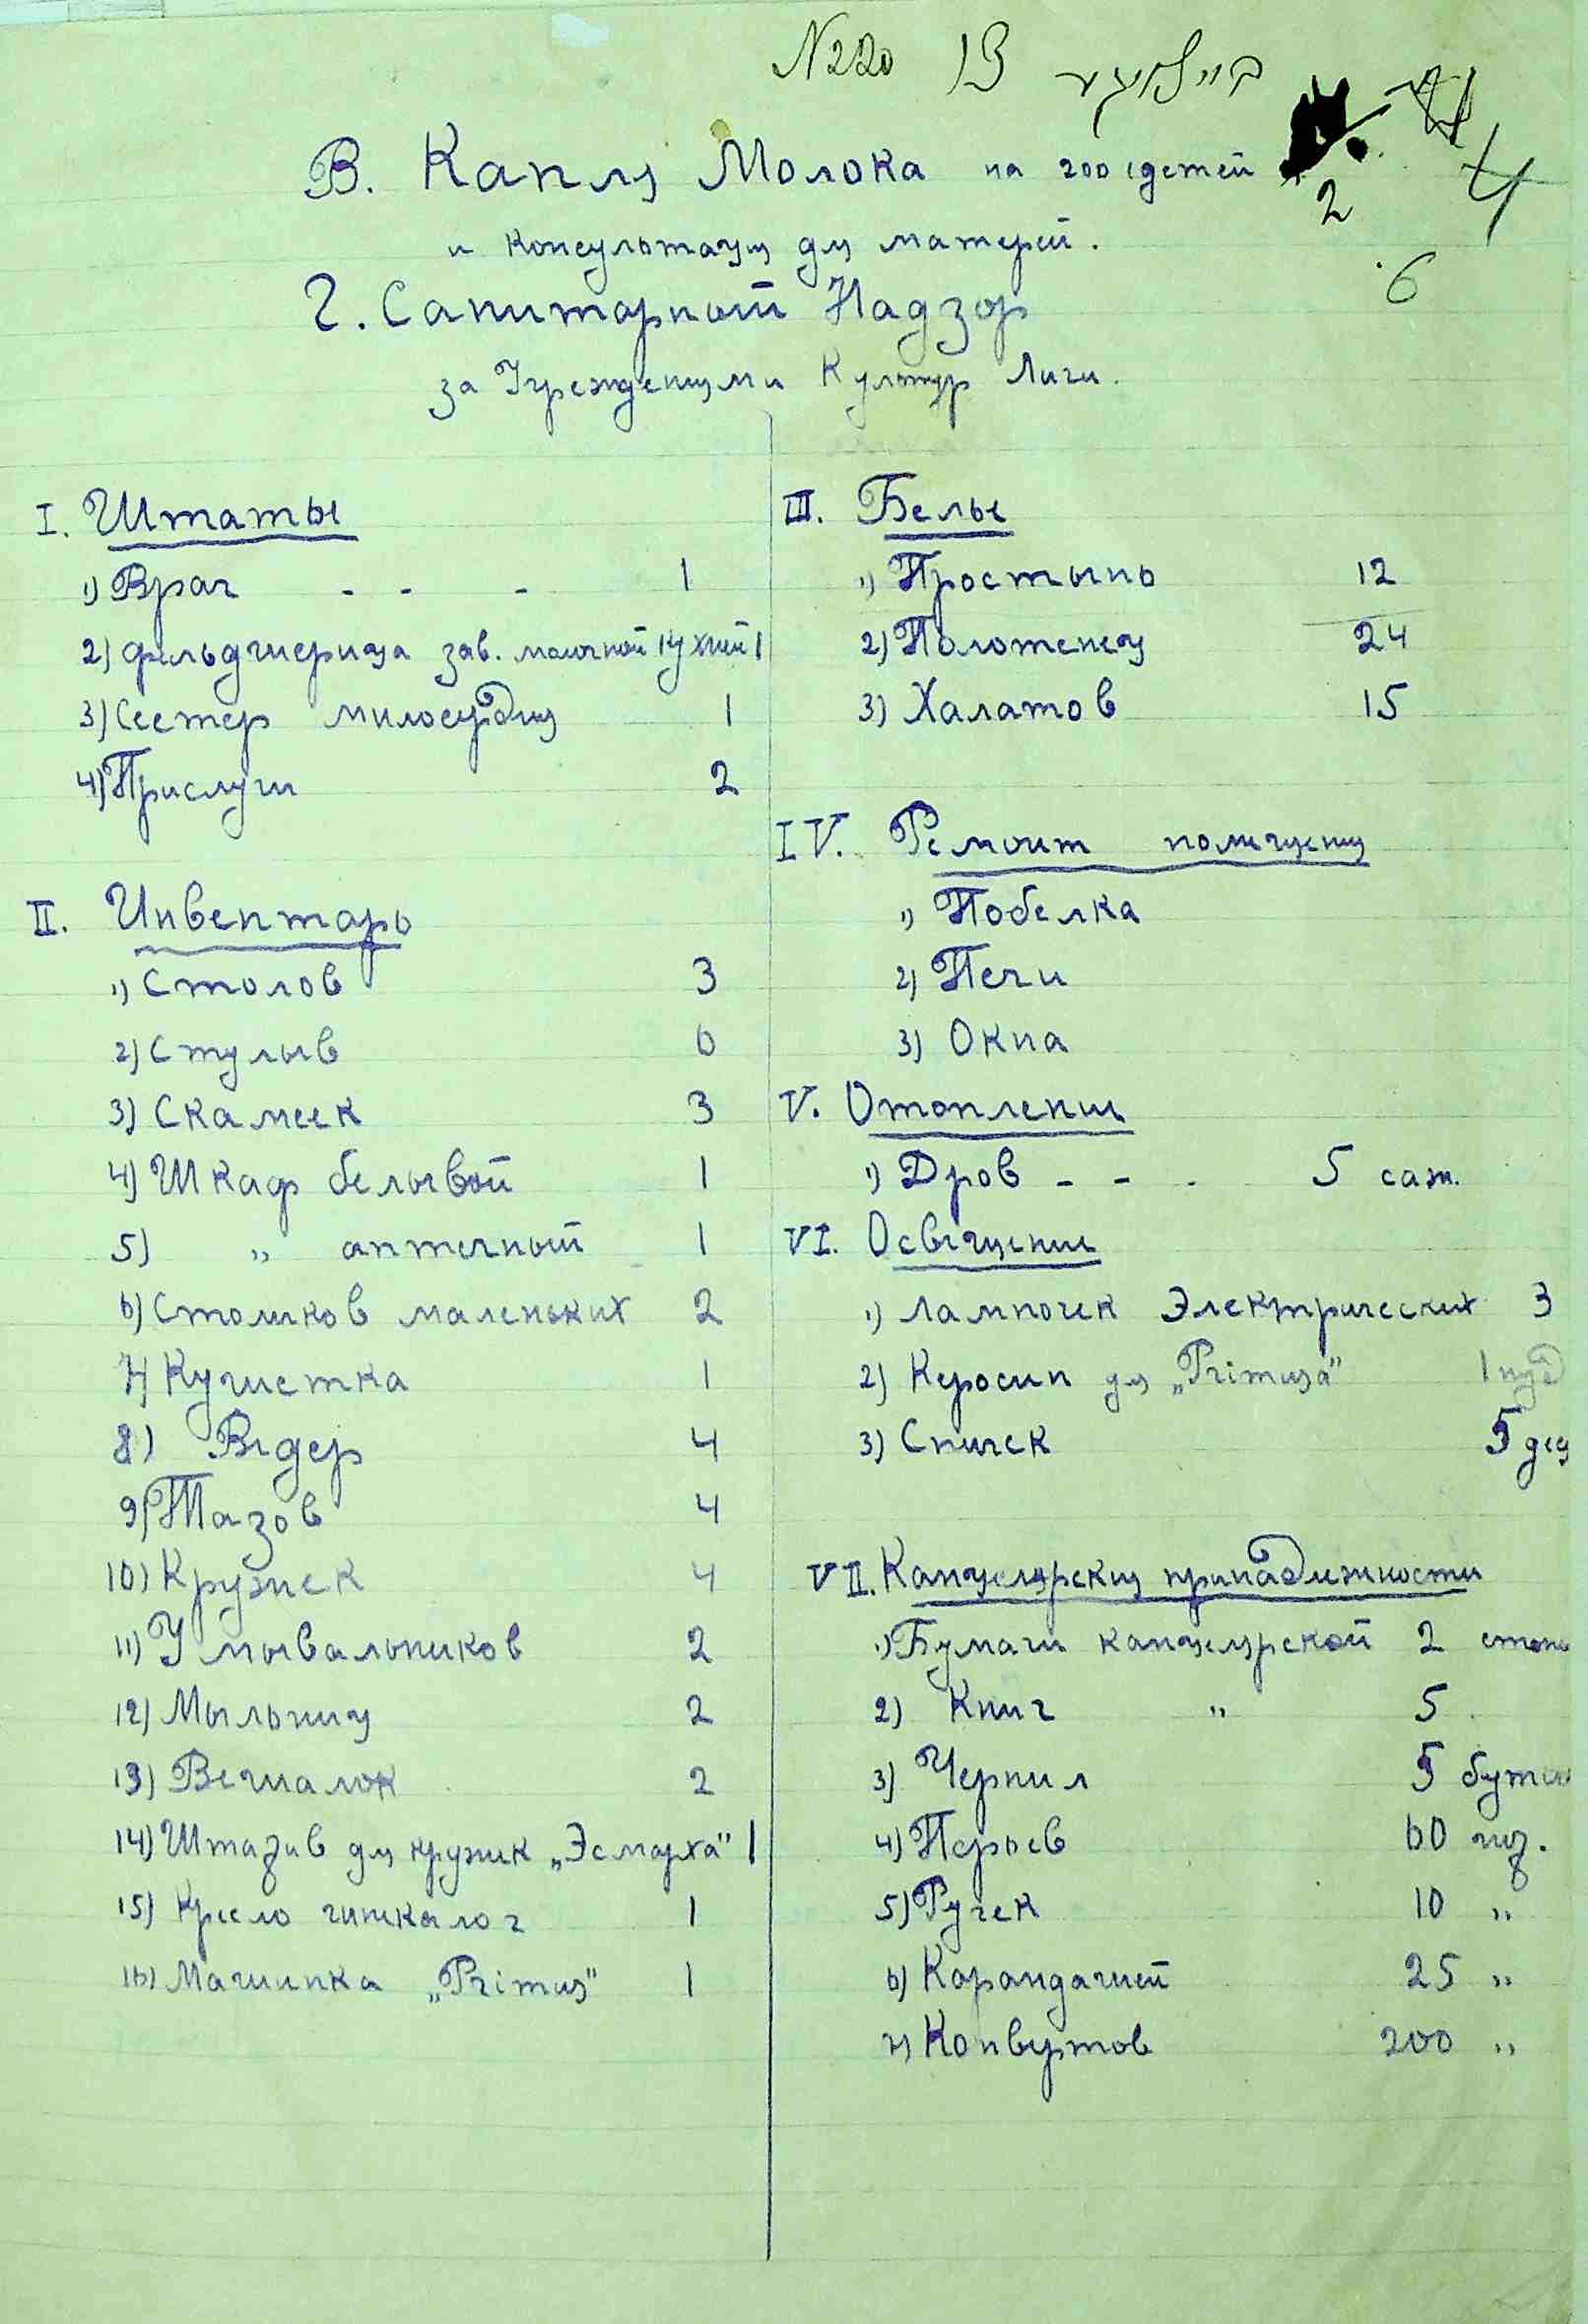 N220 13 בײלאגע
2 4
6
В. Капля Молока на 200 детей
и консультация для матерей.
Г. Санитарный Надзор
за Учреждениями Культур Лиги.
I. Штаты
1) Врач - - - 1
2) Фельдшерица зав. молочной кухней 1
3) Сестер милосердия 1
4) Прислуги 2
II. Инвентарь
1) Столов 3
2) Стульев 6
3) Скамеек 3
4) Шкаф бельевой 1
5) „ аптечный 1
6) Столиков маленьких 2
7) Кушетка 1
8) Ведер 4
9) Тазов 4
10) Кружек 4
11) Умывальников 2
12) Мыльниц 2
13) Вешалок 2
14) Штатив для кружек „Эсмарха" 1
15) Кресло гинеколог 1
16) Машинка „Primus" 1
III. Белье
1) Простынь 12
2) Полотенец 24
3) Халатов 15
IV. Ремонт помещения
1) Побелка
2) Печи
3) Окна
V. Отопление
1) Дров - - - 5 саж.
VI. Освещение
1) Лампочек Электрических 3
2) Керосин для „Primusа" 1 пуд
3) Спичек 5 дес
VII. Канцелярския принадлежности
1) Бумаги канцелярской 2 стопы
2) Книг „ 5
3) Чернил 5 бутыл
4) Перьев 60 шт.
5) Ручек 10 „
6) Карандашей 25 „
7) Конвертов 200 „